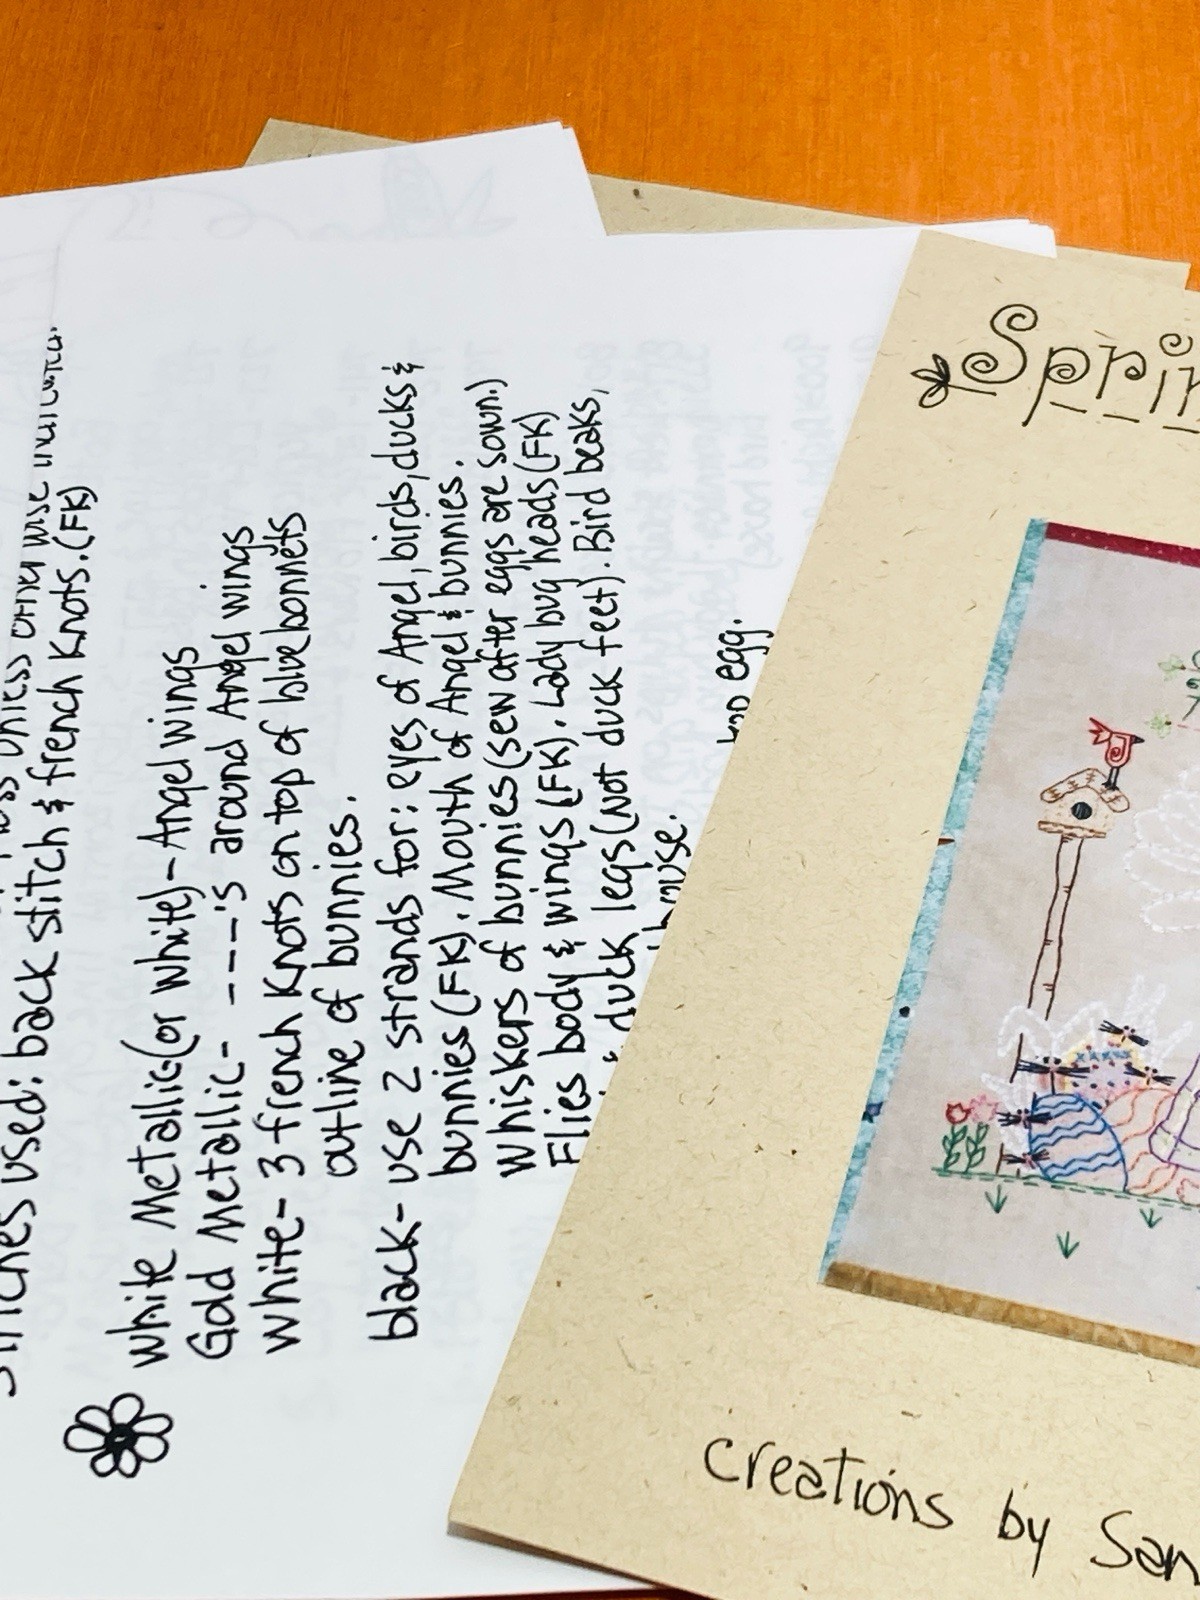 stitches used: back stitch & french knots. (FK)
White Metallic (or white) - Angel wings
Gold Metallic - ----'s around Angel wings
White - 3 french knots on top of bluebonnets
outline of bunnies.
black - use 2 strands for: eyes of Angel, birds, ducks &
bunnies (FK). Mouth of Angel & bunnies.
Whiskers of bunnies (sew after eggs are sown.)
Flies body & wings (FK). Lady bug heads (FK)
& duck legs (not duck feet). Bird beaks,
house.
egg.
Sprin
creations by San